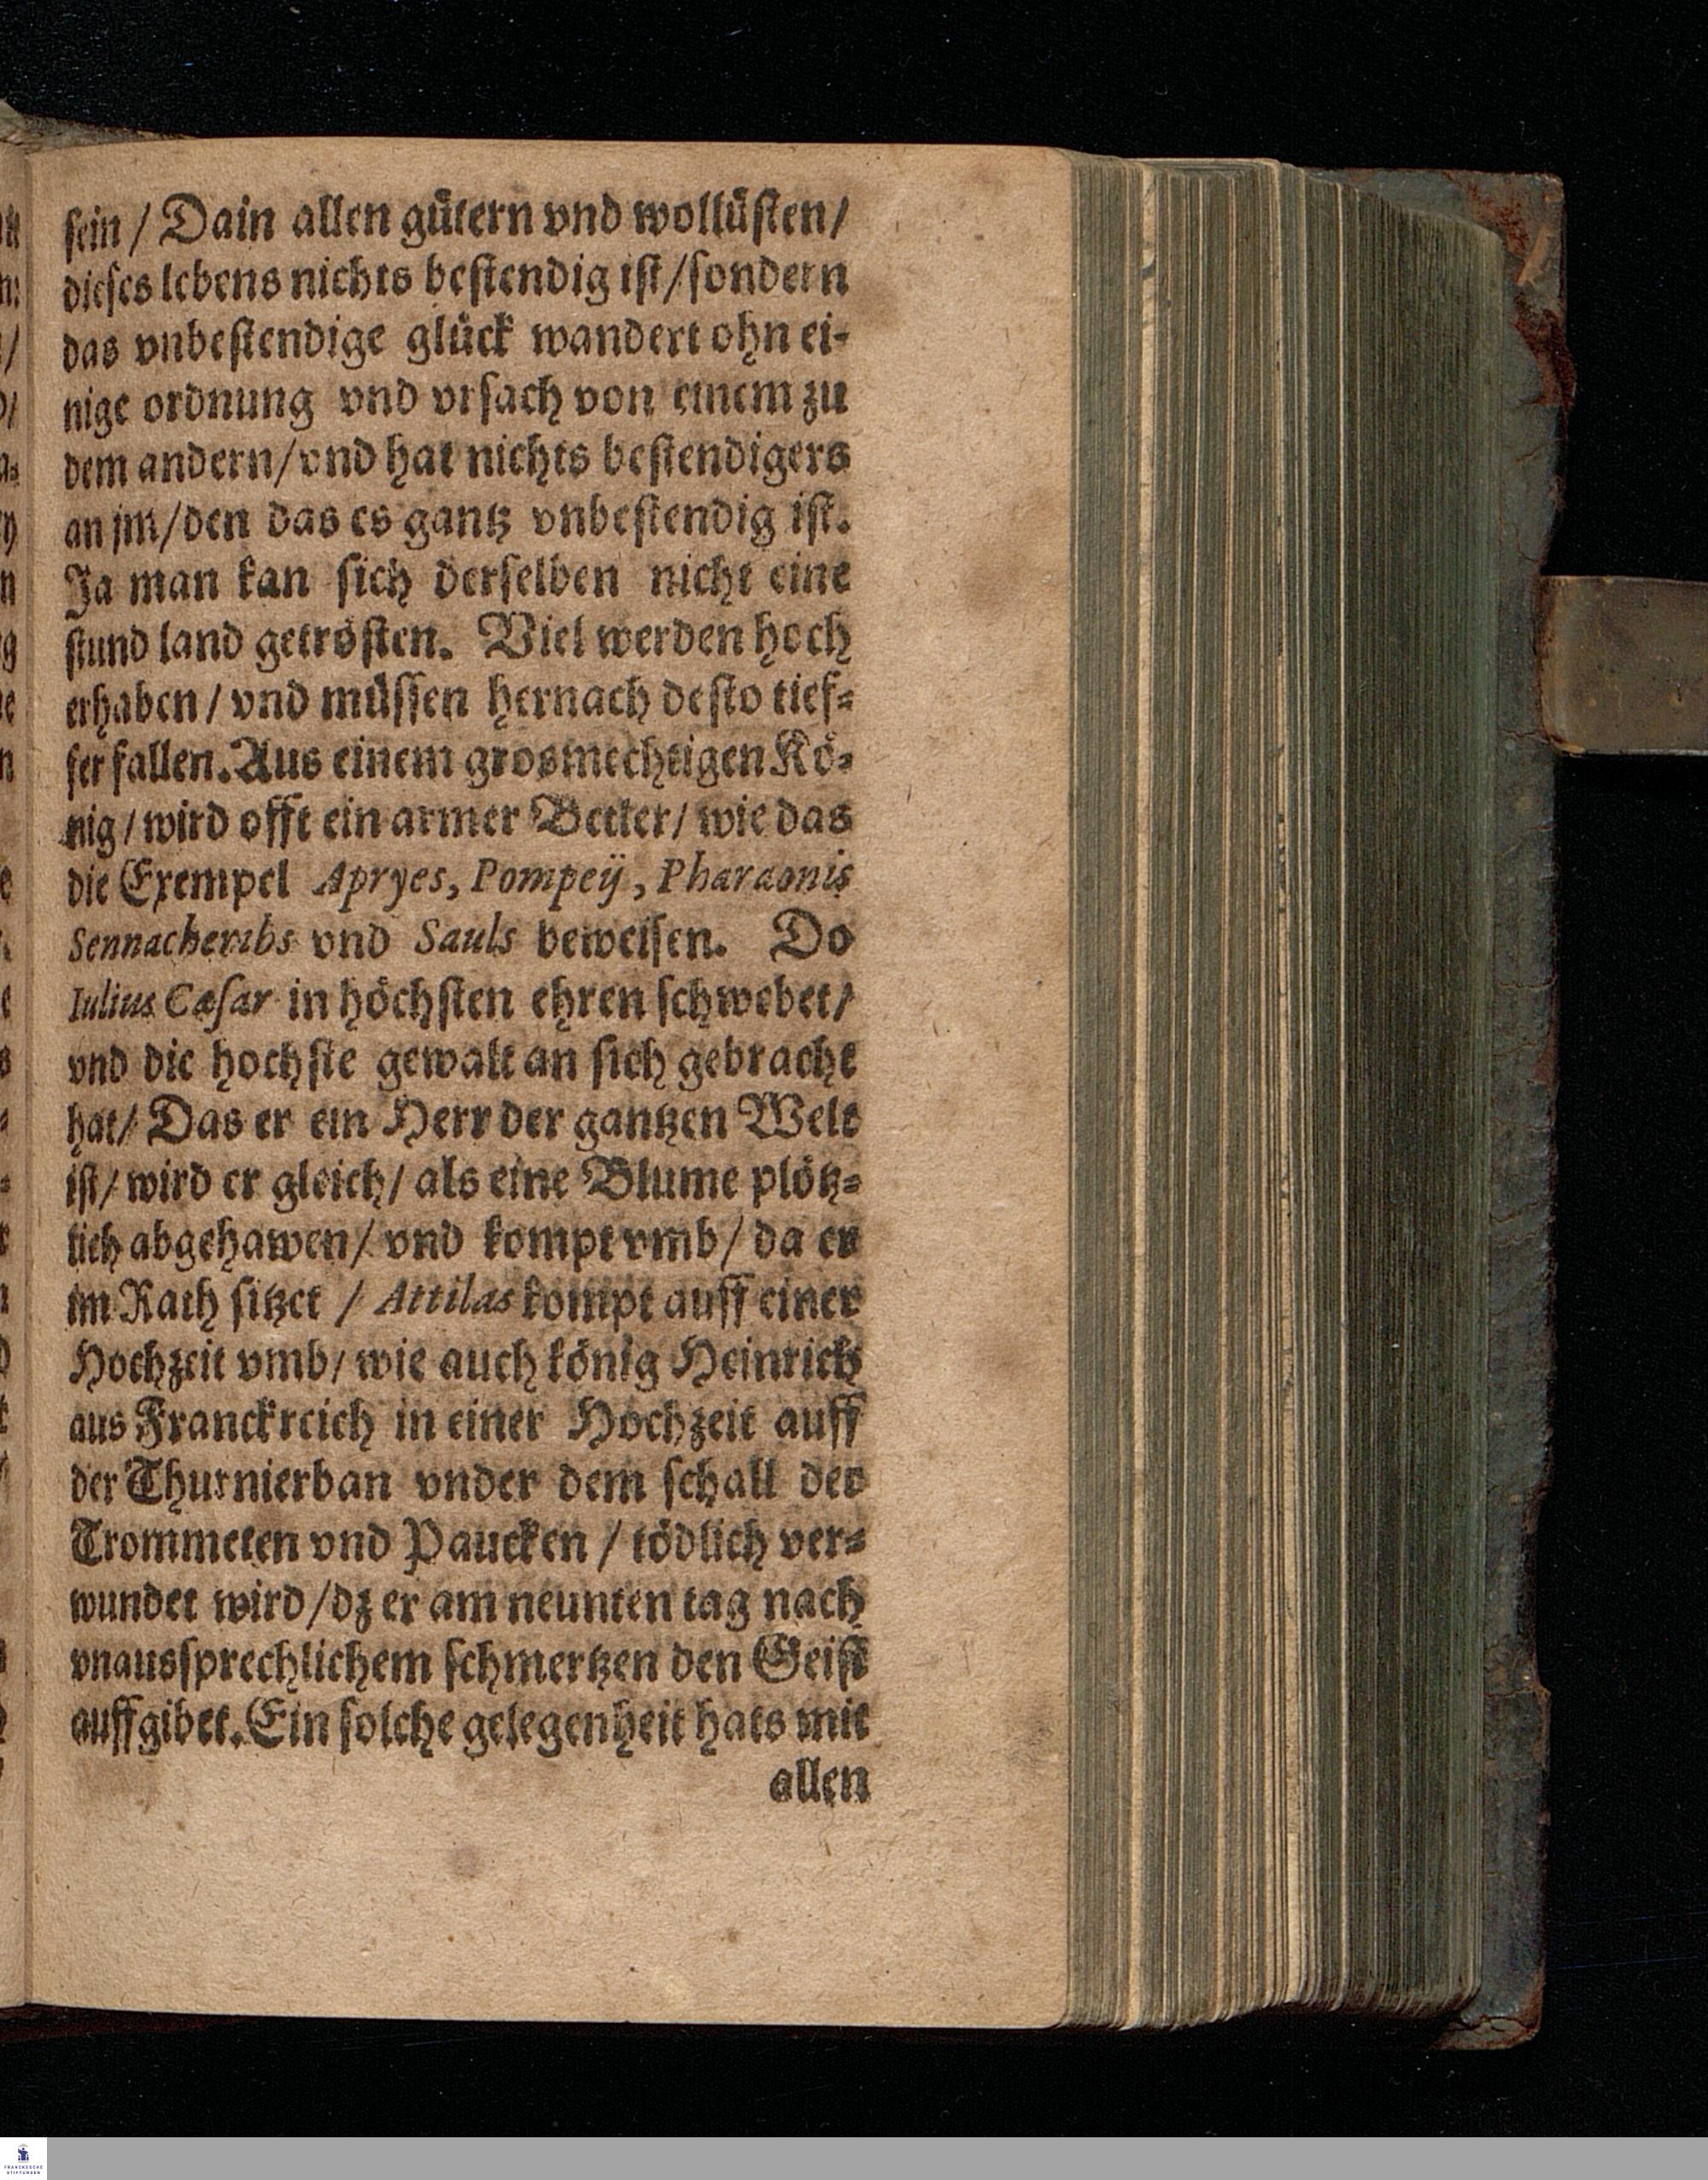 sein / Da in allen gütern vnd wollüsten /
dieses lebens nichts bestendig ist / sondern
das vnbestendige glück wandert ohn ei-
nige ordnung vnd vrsach von einem zu
dem andern / vnd hat nichts bestendigers
an jm / den das es gantz vnbestendig ist.
Ja man kan sich derselben nicht eine
stund land getrösten. Viel werden hoch
erhaben / vnd müssen hernach desto tief-
fer fallen. Aus einem grosmechtigen Kö-
nig / wird offt ein armer Betler / wie das
die Exempel Apryes, Pompeij, Pharaonis
Sennacheribs vnd Sauls beweisen. Do
Iulius Cæsar in höchsten ehren schwebet /
vnd die hochste gewalt an sich gebracht
hat / Das er ein Herr der gantzen Welt
ist / wird er gleich / als eine Blume plötz-
lich abgehawen / vnd kompt vmb / da er
im Rath sitzet / Attilas kompt auff einer
Hochzeit vmb / wie auch könig Heinrich
aus Franckreich in einer Hochzeit auff
der Thurnierban vnder dem schall der
Trommeten vnd Paucken / tödlich ver-
wundet wird / dz er am neunten tag nach
vnaussprechlichem schmertzen den Geist
auffgibet. Ein solche gelegenheit hats mit
allen
FRANCKESCHE
STIFTUNGEN